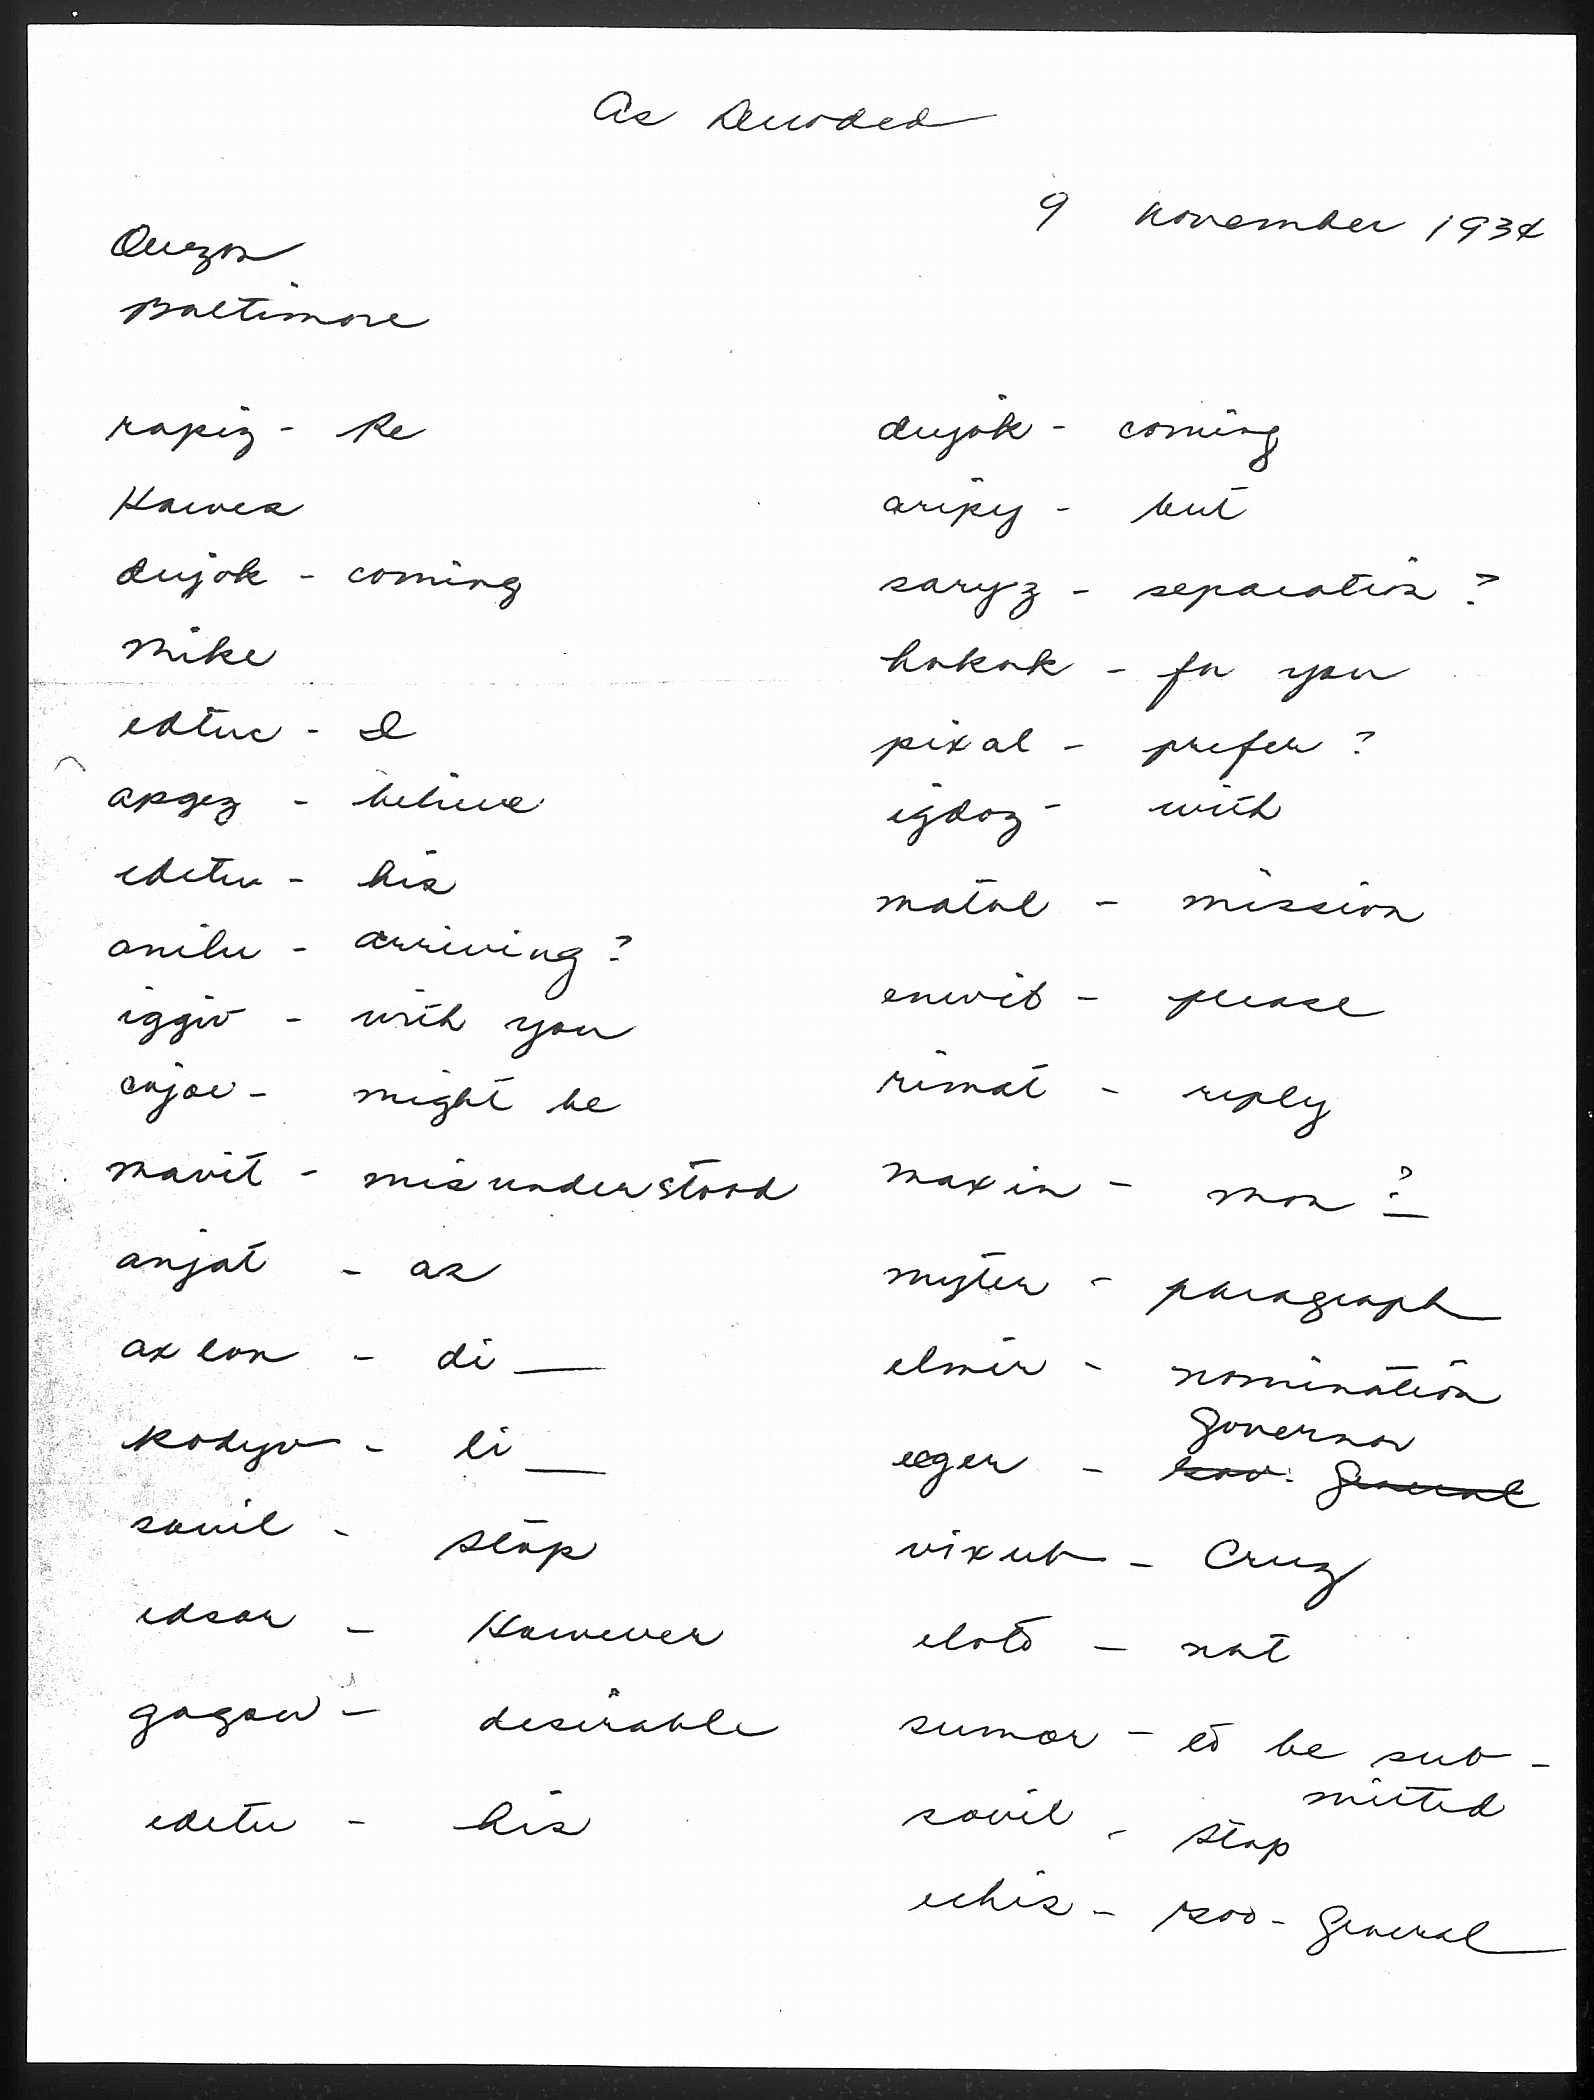 As Decoded
9 November 1934
Quezon
Baltimore
rapiz - Re
Hawes
dujok - coming
Mike
edtuc - I
apgez - believe
edetu - his
anilu - arriving?
iggiv - with you
cujoe - might be
mavit - misunderstood
anjat - as
axlon - di __
kodyv - li __
sovil - stop
edsor - However
gogow - desirable
edetu - his
dujok - coming
aripy - but
saryz - separation ?
hokok - for you
pixal - prefer ?
igdoz - with
matol - mission
enwib - please
rimat - reply
maxin - mon ?
myter - paragraph
elmir - nomination
Governor
exger - Gov. General
vixub - Cruz
eloto - not
sumor - to be sub-
mitted
sovil - stop
echis - Gov - General